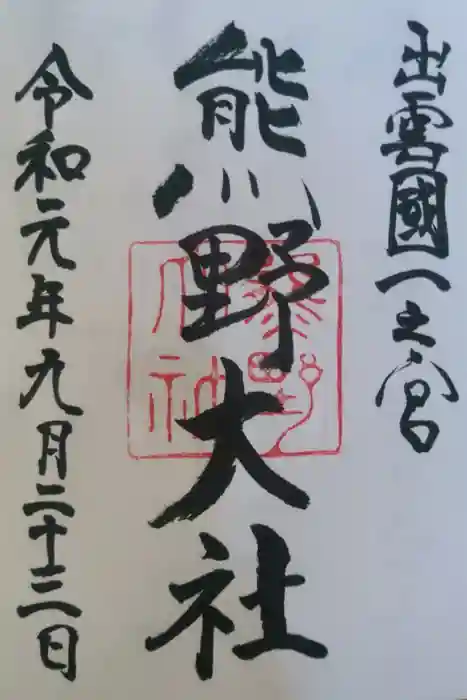 出雲國一之宮
熊野大社
熊野大社
令和元年九月二十三日